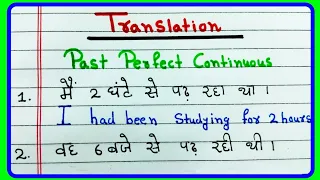 Translation
Past Perfect Continuous
1. मैं 2 घंटे से पढ़ रहा था।
I had been Studying for 2 hours
2. वह 6 बजे से पढ़ रही थी।